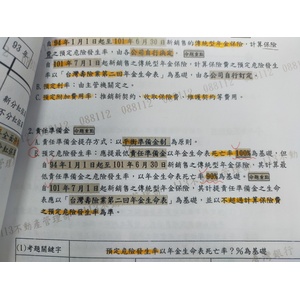 93年
自94年1月1日起至101年6月30日新銷售的傳統型年金保險,計算保險
費之預定危險發生率,由各公司自行訂定。
自101年7月1日起新銷售的傳統型年金保險,計算保險費之預定危險發生率
以「台灣壽險業第二回年金生命表」為基礎,各公司自行訂定。
B.預定利率:由主管機關定之。
C.預定附加費用率:推銷新契約、收取保險費、維護契約等費用。
2.責任準備金
A.責任準備金提存方式:以平衡準備金制為原則。
B.預定危險發生率:應提最低責任準備金以年金生命表死亡率100%為基礎,但
自94年1月1日起至101年6月30日新銷售的傳統型年金保險,其計提責任
準備金之生命表以年金生命表死亡率90%為基礎。
自101年7月1日起新銷售的傳統型年金保險,其計提責任準備金之生命
表應以「台灣壽險業第二回年金生命表」為基礎,並以不超過計算保險費
之預定危險發生率為準。
(1)考題關鍵字
預定危險發生率以年金生命表死亡率?%為基礎